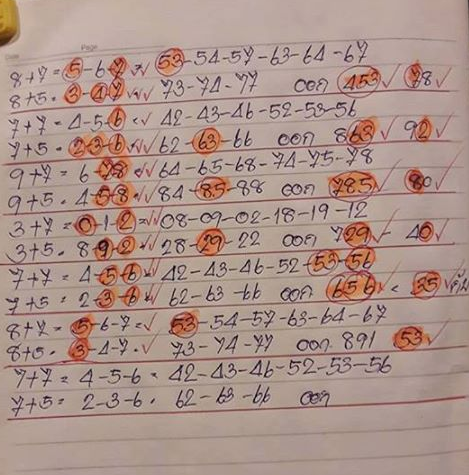 Page
8+7 = 5-6-7 = √√ 53-54-57-63-64-67
8+5 = 3-4-7 √√ 73-74-77 ออก 453 √ 78 √
7+7 = 4-5-6 = √√ 42-43-46-52-53-56
7+5 = 2-3-6 √√ 62-63-66 ออก 863 √ 92 √
9+7 = 6-78 √√ 64-65-68-74-75-78
9+5 = 4-5-8 √√ 84-85-88 ออก 785 √ 80 √
3+7 = 0-1-2 = √√ 08-09-02-18-19-12
3+5 = 8-9-2 √√ 28-29-22 ออก 729 √ 40 √
7+7 = 4-5-6 = √ 42-43-46-52-53-56
7+5 = 2-3-6 √ 62-63-66 ออก 656 √ 35 √
8+7 = 5-6-7 = √ 53-54-57-63-64-67
8+5 = 3-4-7 √√ 73-74-77 ออก 891 53 √
7+7 = 4-5-6 = 42-43-46-52-53-56
7+5 = 2-3-6 = 62-63-66 ออก